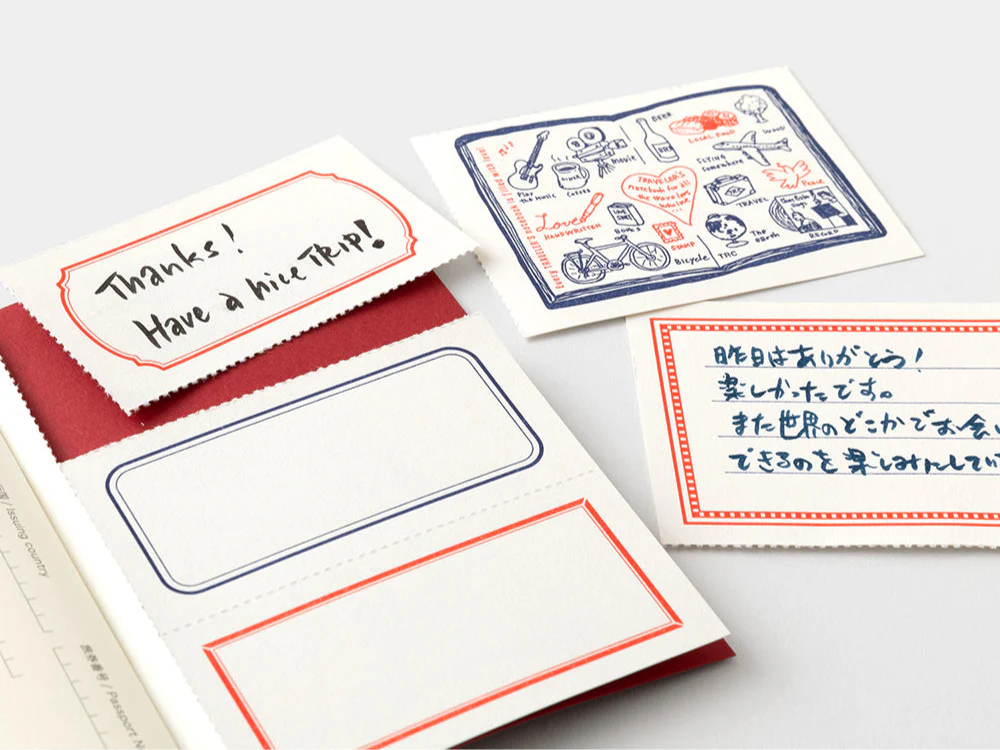 Thanks!
Have a nice TRIP!
BEER
LOCAL FOOD
WOOD
Movie
FLYING
Somewhere
Play
the Music
Coffee
TRAVELER'S
notebook for all
the travelers
who love
Peace
TRAVEL
Love
HANDWRITTEN
BOOKS
STAMP
The
earth
RECORD
Bicycle
TRC
昨日はありがとう!
楽しかったです。
また世界のどこかでお会い
できるのを楽しみにしてい
/ Issuing country
旅券番号 / Passport N